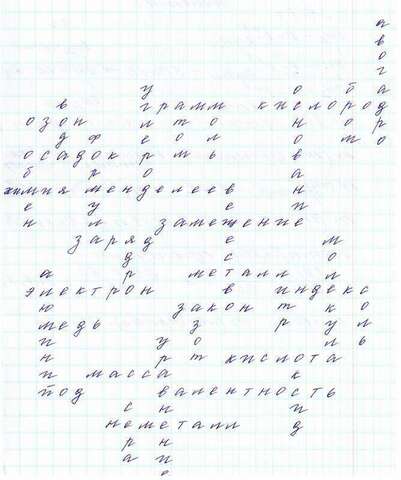 а
в
о
г
у о б а
в грамм кислород
озон л т о н о р
д ф е о л о м о
осадок р м ь в
б р о а
химия менделеев н
е у и
н л замещение
заряд е м
д с о
а р металл л
электрон в индекс
ю закон т к о
медь з р у л
и у о л ь
н р т кислота
и масса к
йод валентность
с н и
неметалл д
р н
а и